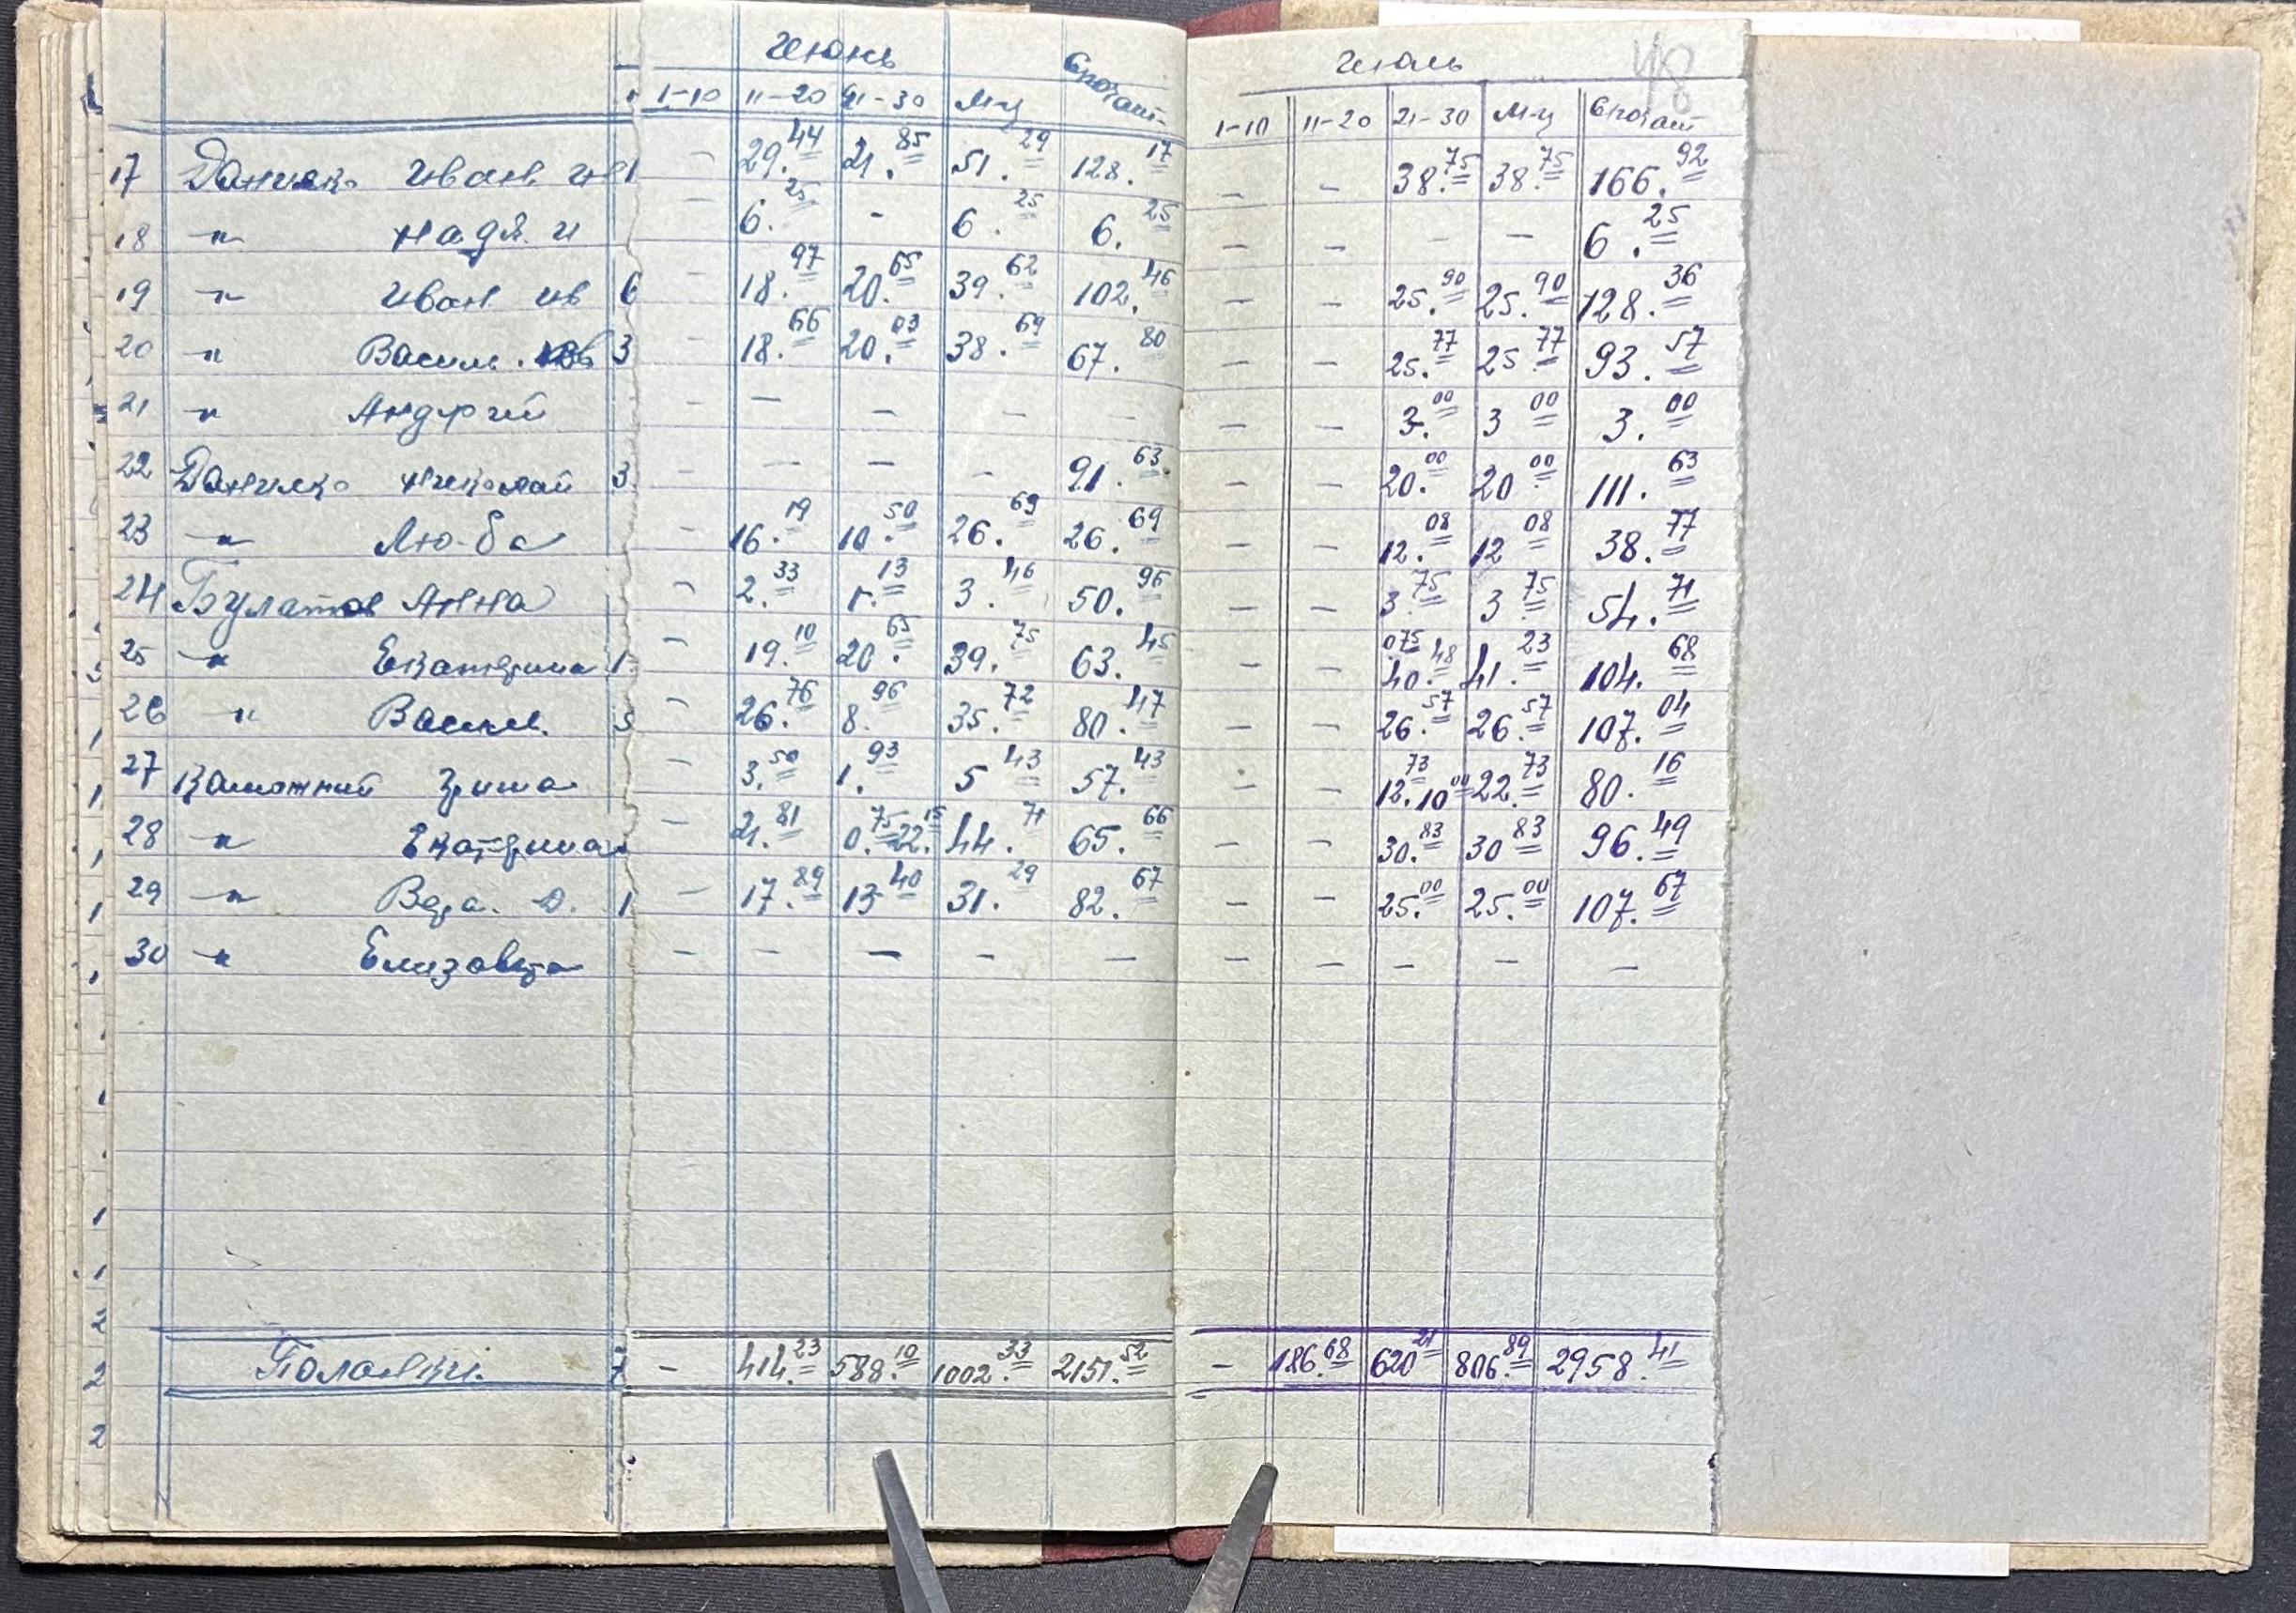 Июнь Июль 48
1-10 11-20 21-30 М-ц Спочат- 1-10 11-20 21-30 М-ц Спочат
17 Данилко Иван Ив 1 - 29.44 21.85 51.29 128.17 - - 38.75 38.75 166.92
18 -"- Надя И - 6.25 - 6.25 6.25 - - - - 6.25
19 -"- Иван Ив 6 - 18.97 20.65 39.62 102.46 - - 25.90 25.90 128.36
20 -"- Василь. 3 - 18.66 20.03 38.69 67.80 - - 25.77 25.77 93.57
21 -"- Андрій - - - - - - - 3.00 3 00 3.00
22 Данилко Николай 3 - - - - 91.63 - - 20.00 20 00 111.63
23 -"- Лю-ба - 16.19 10.50 26.69 26.69 - - 12.08 12 08 38.77
24 Булатов Анна - 2.33 1.13 3.46 50.96 - - 3.75 3 75 54.71
25 -"- Екатерина 1 - 19.10 20.65 39.75 63.45 - - 075 40.48 41.23 104.68
26 -"- Васил. 3 - 26.76 8.96 35.72 80.47 - - 26.57 26.57 107.04
27 Заможний Гриша - 3.50 1.93 5 43 57.43 - - 12.73 10 00 22.73 80.16
28 -"- Екатерина - 21.81 0.75 22.15 44.71 65.66 - - 30.83 30 83 96.49
29 -"- Вера. Д. 1 - 17.89 13 40 31.29 82.67 - - 25.00 25.00 107.67
30 -"- Елизовета - - - - - - - - - -
Полянки. 7 - 414.23 588.10 1002.33 2151.52 - 186.68 620 21 806.89 2958.41